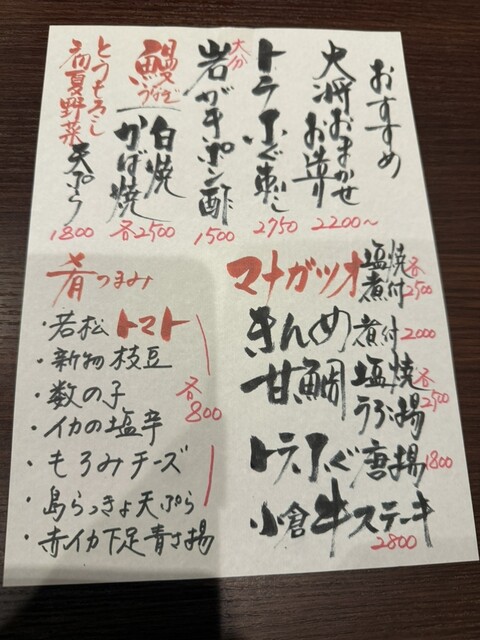 おすすめ
大将おまかせ
お造り
2200〜
トラふぐ刺し
2750
大分
岩ガキポン酢
1500
鰻
うなぎ
白焼
かば焼
各2500
とうもろこし
初夏野菜天ぷら
1800
マナガツオ 塩焼 煮付 各2500
きんめ 煮付 2000
甘鯛 塩焼 うろこ揚 各2500
トラふぐ唐揚 1800
小倉牛ステーキ
2800
肴つまみ
・若松トマト
・新物枝豆
・数の子
・イカの塩辛
・もろみチーズ
・島らっきょ天ぷら
・赤イカ下足青さ揚
各800